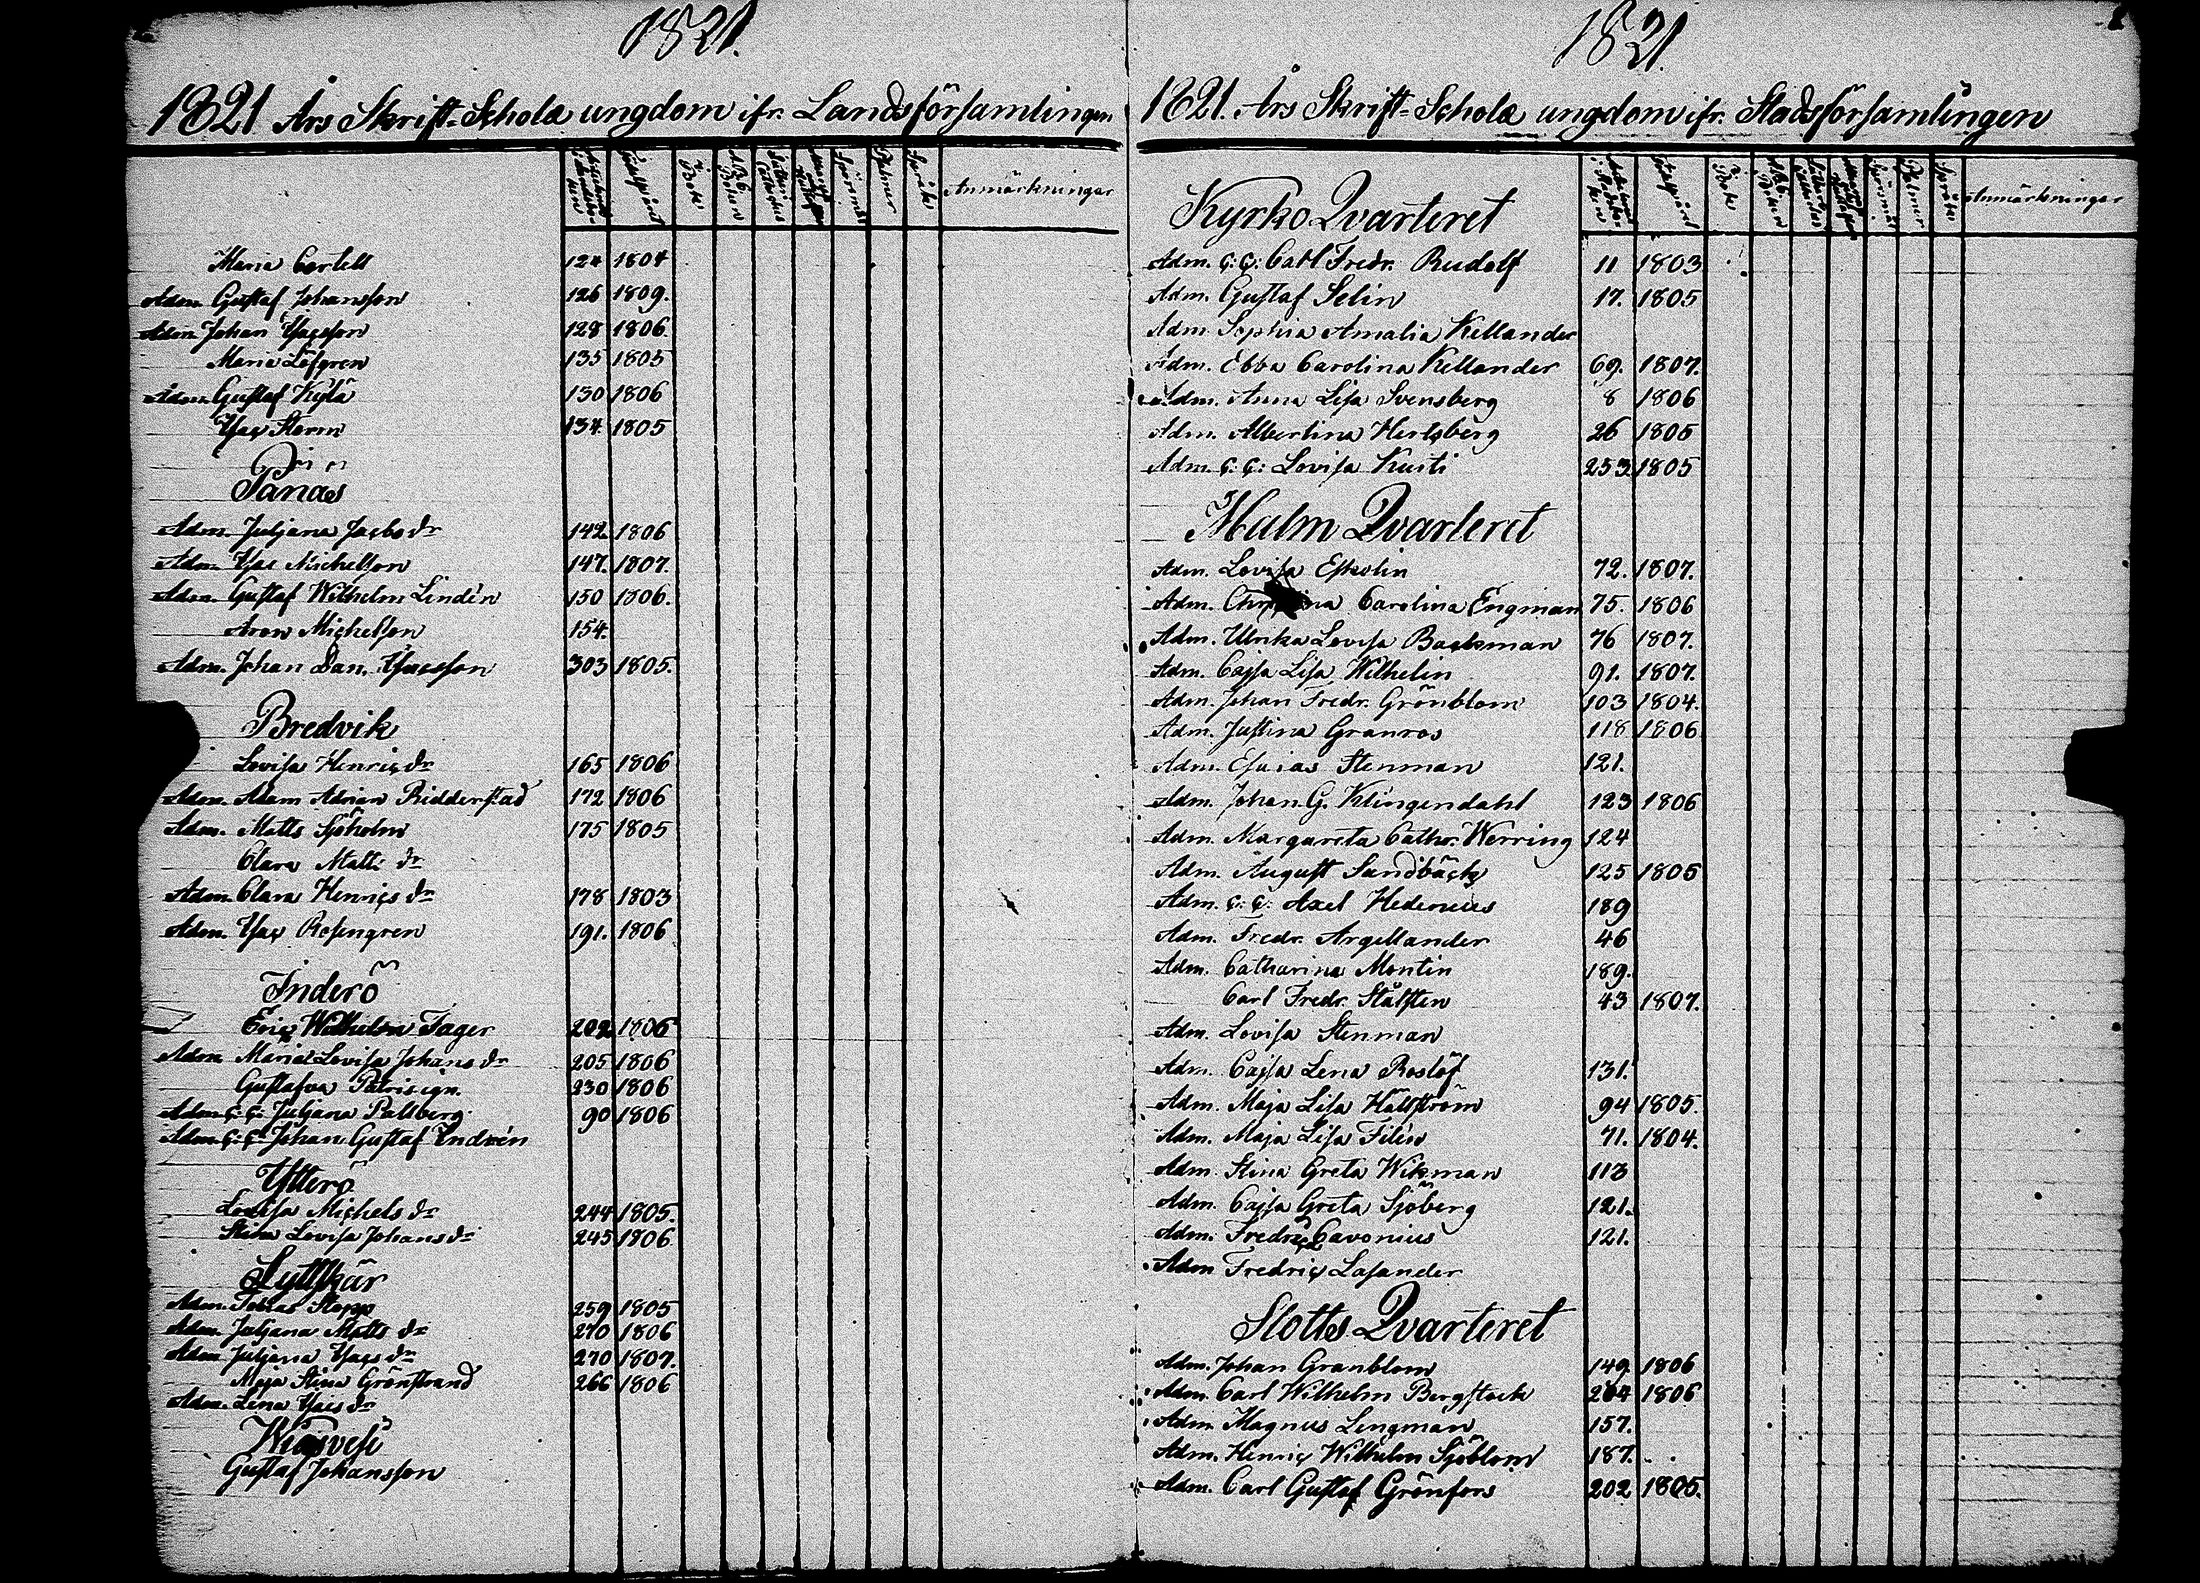 1821.
1821 Års Skrift-Schola ungdom ifr. Landsförsamlingen
Födelseår I Bok ABC Boken Luthers Cateches Spörsmål Psalmer Språk Anmärkningar
Maria Cartell 124 1804
Adm. Gustaf Johansson 126 1809.
Adm. Johan Isacsson 128 1806
Maria Löfgren 135 1805
Adm. Gustaf Kylä 130 1806
Isac Storm 134 1805
Pånäs
Adm. Juljana Jacobsdr 142 1806
Adm. Isac Michelsson 147. 1807.
Adm. Gustaf Wilhelm Lindén 150 1806.
Aron Michelsson 154.
Adm. Johan Dan. Isacsson 303 1805.
Bredvik
Lovisa Henricsdr 165 1806
Adm. Adam Adrian Ridderstad 172 1806
Adm. Matts Sjöholm 175 1805
Clara Matts dr
Adm. Clara Henrics dr 178 1803
Adm. Isac Rosengren 191. 1806
Inderö
Eric Wilhelm Fager 202 1806
Adm. Maria Lovisa Johans dr 205 1806
Gustafva 230 1806
Adm. C: C: Juljana Pallberg 90 1806
Adm. C: C: Johan Gustaf Indrén
Ytterö
Lovisa Michels dr 244 1805.
Stina Lovisa Johans dr 245 1806
Lyttskär
Adm. Tobias Stepp 259 1805
Adm. Juljana Matts dr 270 1806
Adm. Juljana Isacs dr 270 1807.
Maja Stina Grönstrand 266 1806
Adm. Lena Isacs dr
Kiasvesi
Gustaf Johansson
1821.
1821. Års Skrift-Schola ungdom ifr. Stadsförsamlingen
Födelseår I Bok ABC Boken Luthers Cateches Spörsmål Psalmer Språk Anmärkningar
Kyrko Qvarteret
Adm. C: C: Carl Fredr. Rudolf 11 1803
Adm. Gustaf Selin 17. 1805
Adm. Sophia Amalia Kellander
Adm. Ebba Carolina Kellander 69. 1807.
Adm. Anna Lisa Svensberg 8 1806
Adm. Albertina Hertzberg 26 1805
Adm. C: C: Lovisa Kusti 253 1805
Malm Qvarteret
Adm. Lovisa Eskolin 72. 1807.
Adm. Christina Carolina Engman 75. 1806
Adm. Ulrika Lovisa Backman 76 1807.
Adm. Cajsa Lisa Wilhelin 91. 1807.
Adm. Johan Fredr. Grönblom 103 1804.
Adm. Justina Granros 118 1806
Adm. Esaias Stenman 121.
Adm. Johan G. Klingendahl 123 1806
Adm. Margareta Cathr. Werring 124
Adm. August Sandbäck 125 1805
Adm. C: C: Axel Hedenius 189
Adm. Fredr. Argellander 46
Adm. Catharina Montin 189.
Carl Fredr. Stålsten 43 1807.
Adm. Lovisa Stenman
Adm. Cajsa Lena Roslöf 131.
Adm. Maja Lisa Hällström 94 1805.
Adm. Maja Lisa Filén 71. 1804.
Adm. Stina Greta Wikman 113
Adm. Cajsa Greta Sjöberg 121.
Adm. Fredric Cavonius 121.
Adm Fredric Lasander
Slotts Qvarteret
Adm. Johan Granblom 149 1806
Adm. Carl Wilhelm Bergstock 204 1806
Adm. Magnus Lengman 157.
Adm. Henric Wilhelm Sjöblom 187.
Adm. Carl Gustaf Grönfors 202 1805.